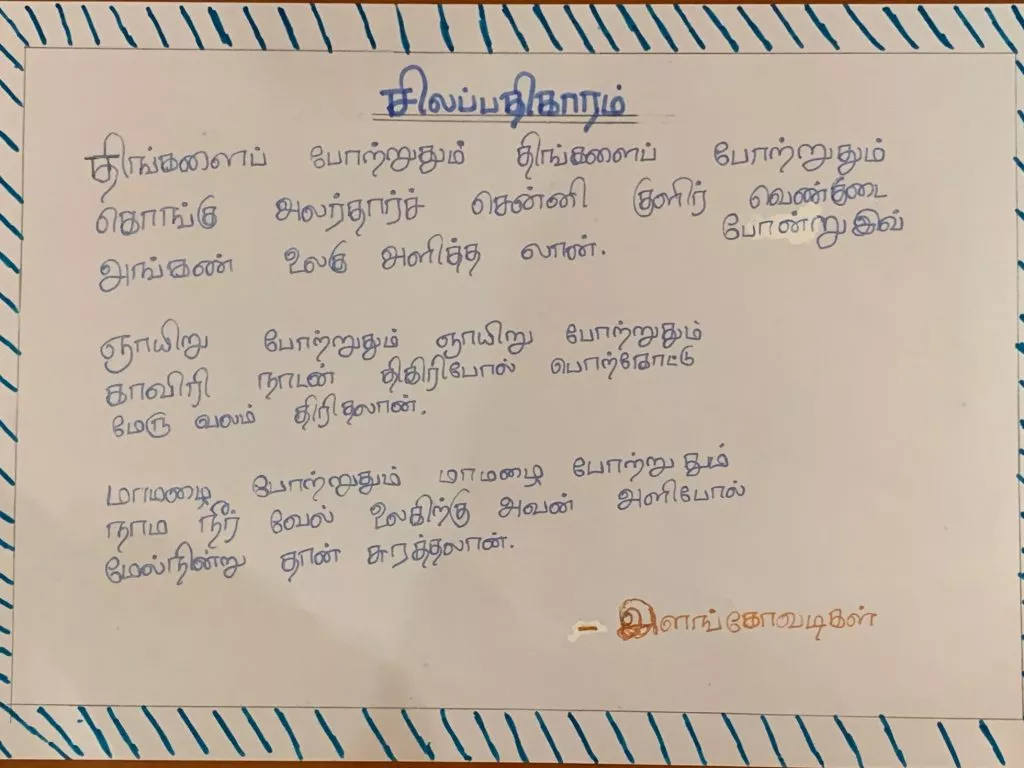 சிலப்பதிகாரம்
திங்களைப் போற்றுதும் திங்களைப் போற்றுதும்
கொங்கு அலர்தார்ச் சென்னி குளிர் வெண்குடை
போன்றுஇவ்
அங்கண் உலகு அளித்த லான்.
ஞாயிறு போற்றுதும் ஞாயிறு போற்றுதும்
காவிரி நாடன் திகிரிபோல் பொற்கோட்டு
மேரு வலம் திரிதலான்.
மாமழை போற்றுதும் மாமழை போற்றுதும்
நாம நீர் வேல் உலகிற்கு அவன் அளிபோல்
மேல்நின்று தான் சுரத்தலான்.
- இளங்கோவடிகள்